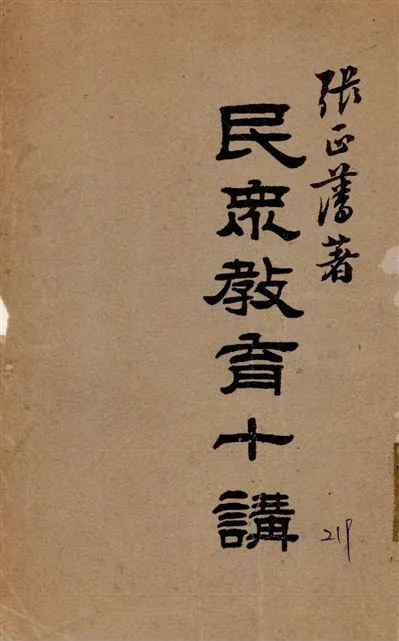 張正藩著
民眾教育十講